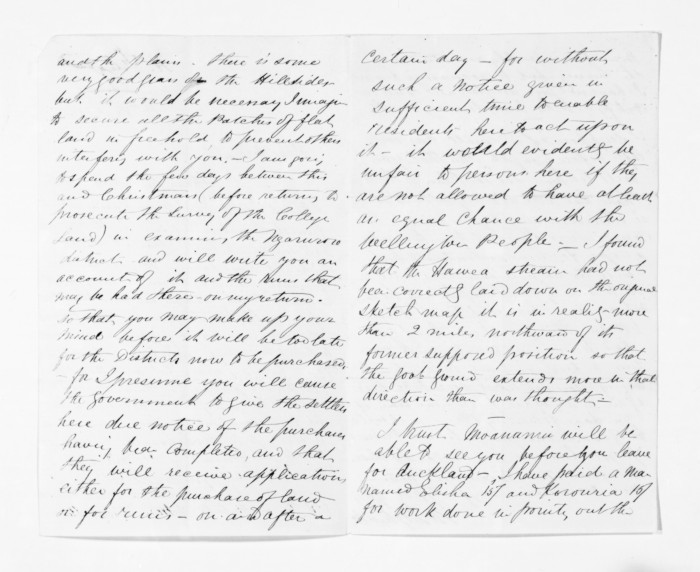 and the plains. There is some
very good grass on the Hillsides
but it would be necessary I imagin
to secure all the Patches of flat
land in freehold, to prevent others
interferg with you. — I am going
to spend the few days between this
and Christmas (before returng to
prosecute the Survey of the College
land) in examing the Ngaruroro
district and will write you an
account of it and the runs that
may be had there on my return.
So that you may make up your
mind before it will be too late
for the Districts now to be purchased
— for I presume you will cause
the Government to give the settlers
here due notice of the purchases
having been completed, and that
they will receive applications
either for the purchase of land
or for runs — on and after a
certain day — for without
such a Notice given in
sufficient time to enable
residents here to act upon
it — it would evidently be
unfair to persons here if they
are not allowed to have at least
an equal Chance with the
Wellington People — I found
that the Hawea stream had not
been correctly laid down on the original
sketch map it is in reality more
than 2 miles northward of its
former supposed position so that
the good ground extends more in that
direction than was thought —
I trust Moananui will be
able to see you before you leave
for Auckland —, I have paid a Ma-
named Elisha 15/ and Karauria 10/
for work done in pointg out the